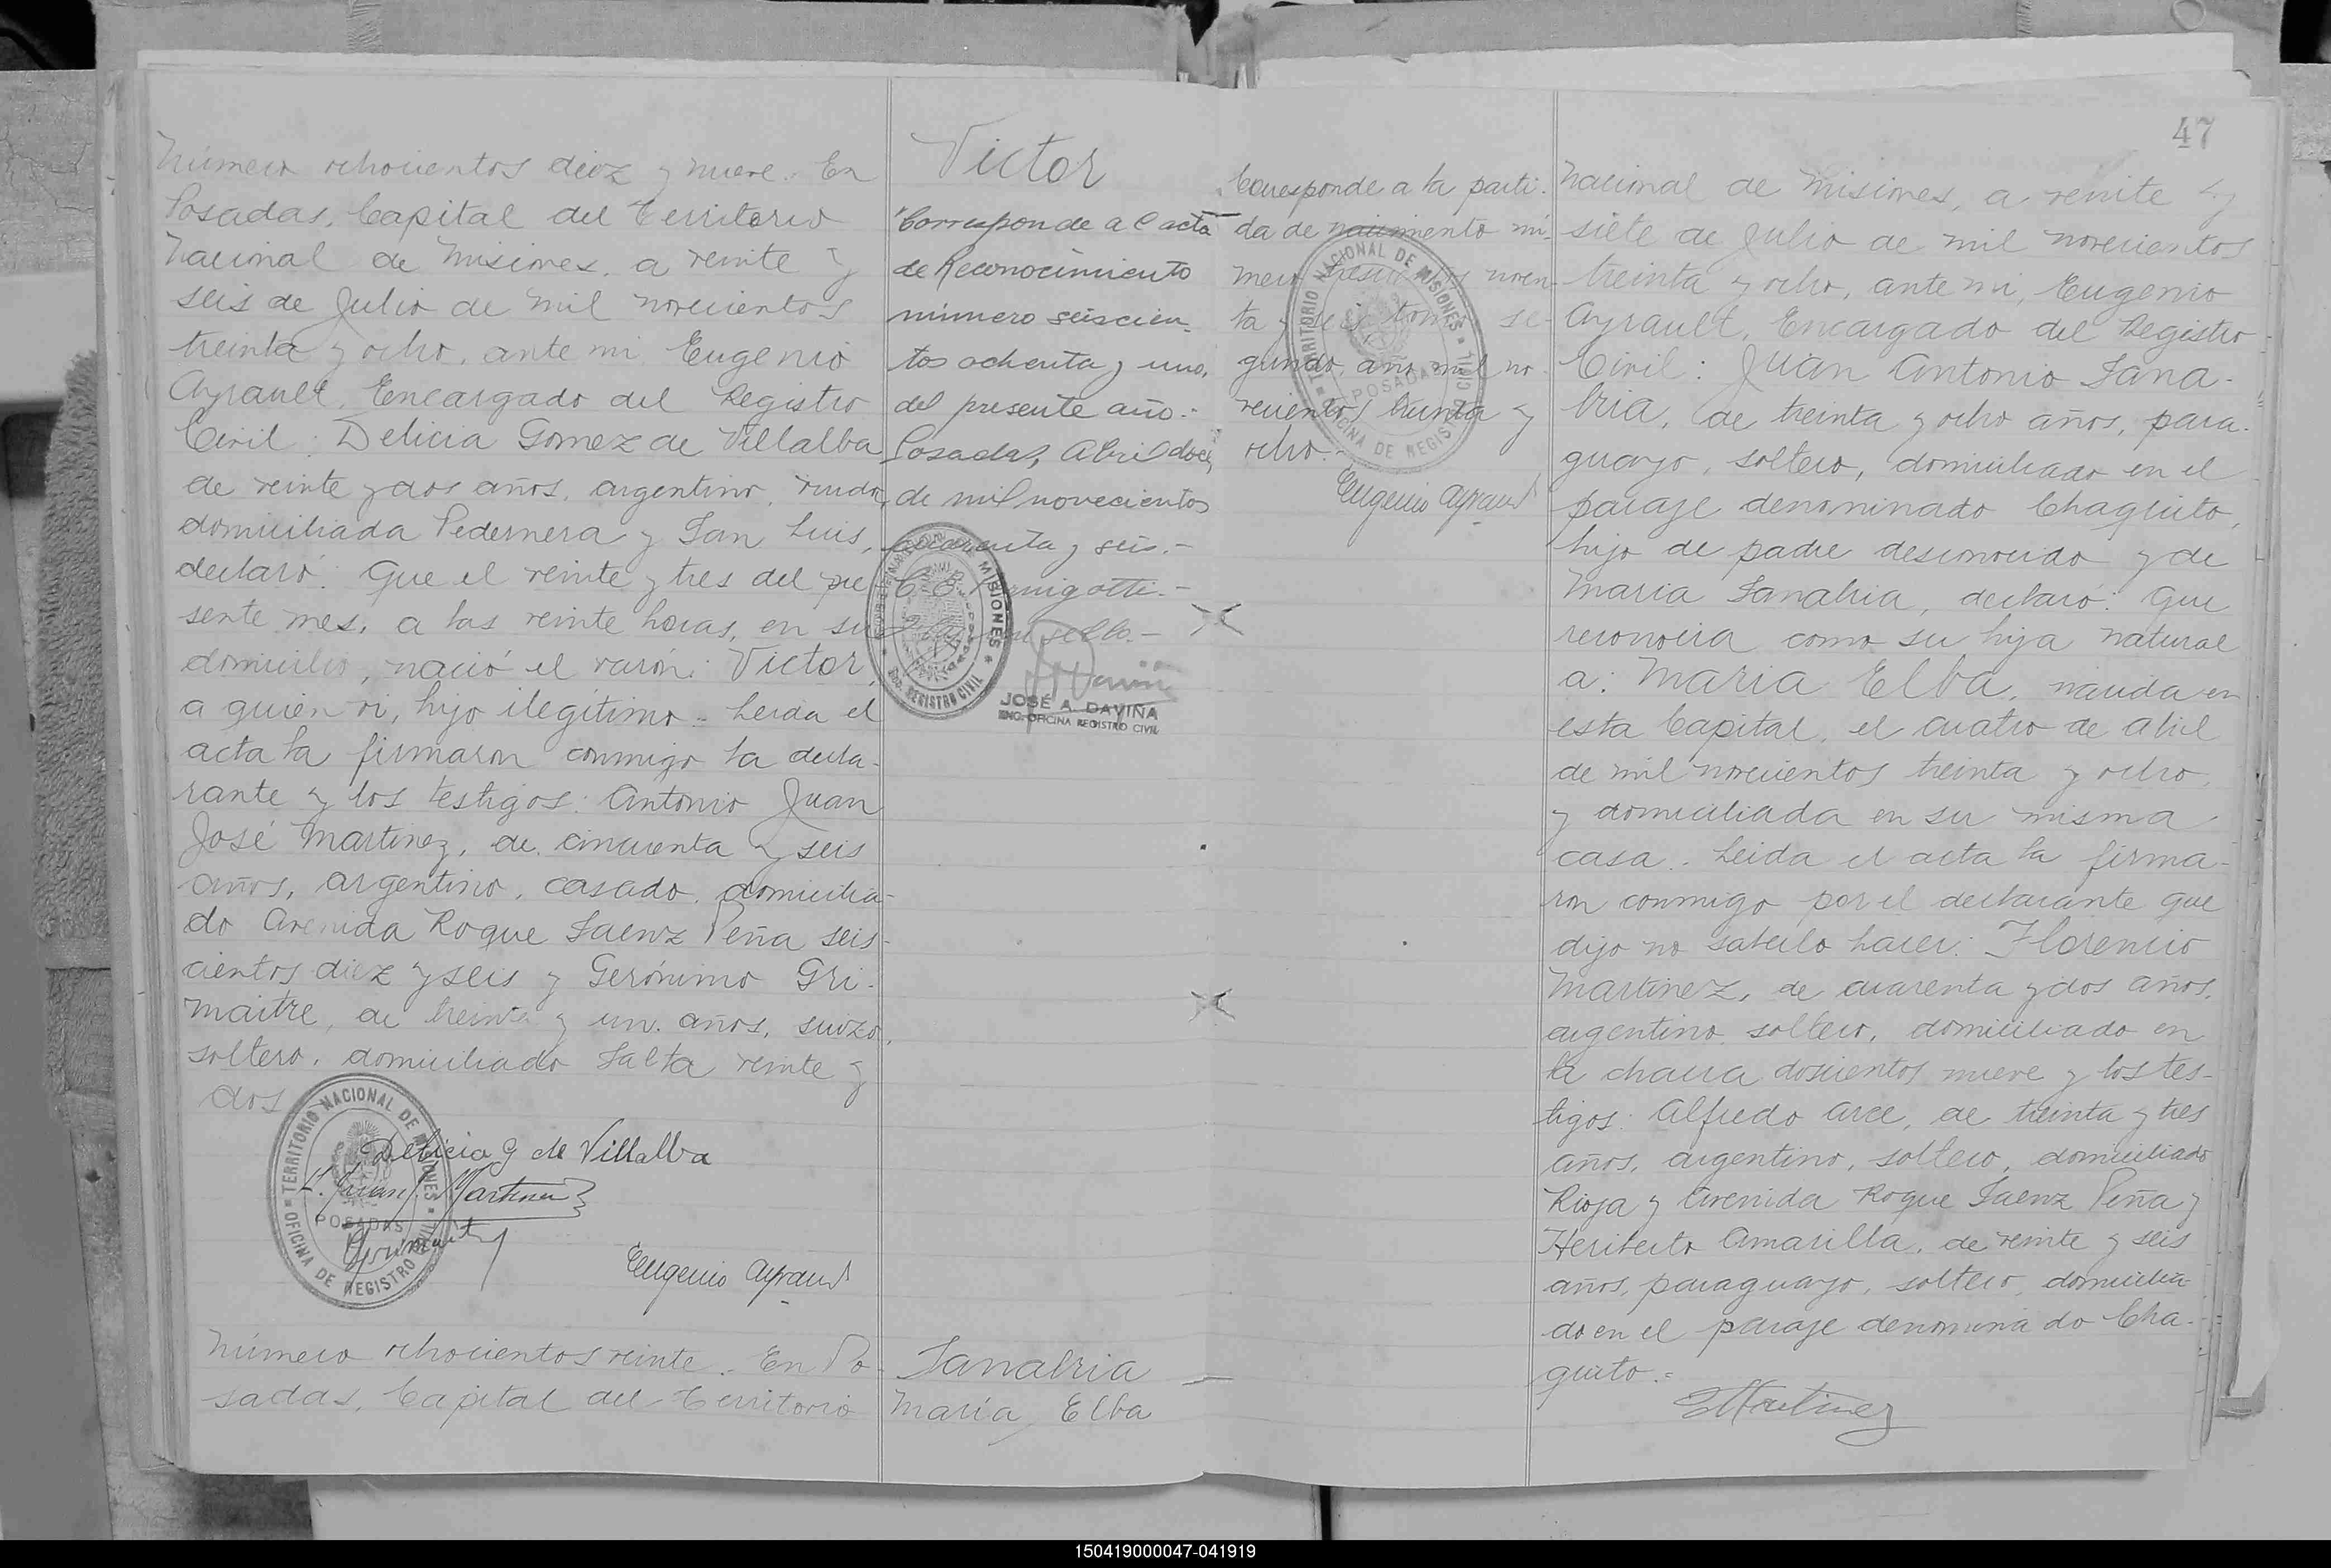 Número ochocientos diez y nueve.- En
Posadas, Capital del Territorio
Nacional de Misiones, a veinte y
seis de Julio de mil novecientos
treinta y ocho, ante mi Eugenio
Ayrault, Encargado del Registro
Civil: Delicia Gomez de Villalba
de veinte y dos años, argentino, viuda,
domiciliada Pedernera y San Luis,
declaró: Que el veinte y tres del pre
sente mes, a las veinte horas, en su
domicilio, nació el varón: Victor,
a quien vi, hijo ilegítimo.- Leida el
acta la firmaron conmigo la decla-
rante y los testigos: Antonio Juan
José Martinez, de cincuenta y seis
años, argentino, casado, domicilia-
do Avenida Roque Saenz Peña seis-
cientos diez y seis y Gerónimo Gri-
maitre, de treinta y un años, suizo,
soltero, domiciliado Salta veinte y
dos
TERRITORIO NACIONAL DE MISIONES
POSADAS
OFICINA DE REGISTRO CIVIL
Delicia G de Villalba
Juan J. Martinez
Eugenio Ayrault
Número ochocientos veinte.- En Po-
sadas, Capital del Territorio
Victor
Corresponde al acta
de Reconocimiento
número seiscien-
tos ochenta y uno,
del presente año.-
Posadas, Abril doce,
de mil novecientos
cuarenta y seis.-
MISIONES
REGISTRO CIVIL
JOSÉ A. DAVIÑA
ENC. OFICINA REGISTRO CIVIL
Sanabria
María Elba
Corresponde a la parti-
da de nacimiento nú-
mero trescientos noven-
ta y seis tomo se-
gundo, año mil no-
vecientos treinta y
ocho.-
TERRITORIO NACIONAL DE MISIONES
POSADAS
OFICINA DE REGISTRO CIVIL
Eugenio Ayrault
47
Nacional de Misiones, a veinte y
siete de Julio de mil novecientos
treinta y ocho, ante mi, Eugenio
Ayrault, Encargado del Registro
Civil: Juan Antonio Sana-
bria, de treinta y ocho años, para-
guayo, soltero, domiciliado en el
paraje denominado Chaquito,
hijo de padre desconocido y de
Maria Sanabria, declaró: Que
reconocia como su hija natural
a: Maria Elba, nacida en
esta Capital, el cuatro de abril
de mil novecientos treinta y ocho,
y domiciliada en su misma
casa.- Leida el acta la firma-
ron conmigo por el declarante que
dijo no saberlo hacer: Florencio
Martinez, de cuarenta y dos años,
argentino, soltero, domiciliado en
la chacra doscientos nueve y los tes-
tigos: Alfredo Arce, de treinta y tres
años, argentino, soltero, domiciliado
Rioja y Avenida Roque Saenz Peña y
Heriberto Amarilla, de veinte y seis
años, paraguayo, soltero, domicilia-
do en el paraje denomina do Cha-
quito.-
150419000047-041919